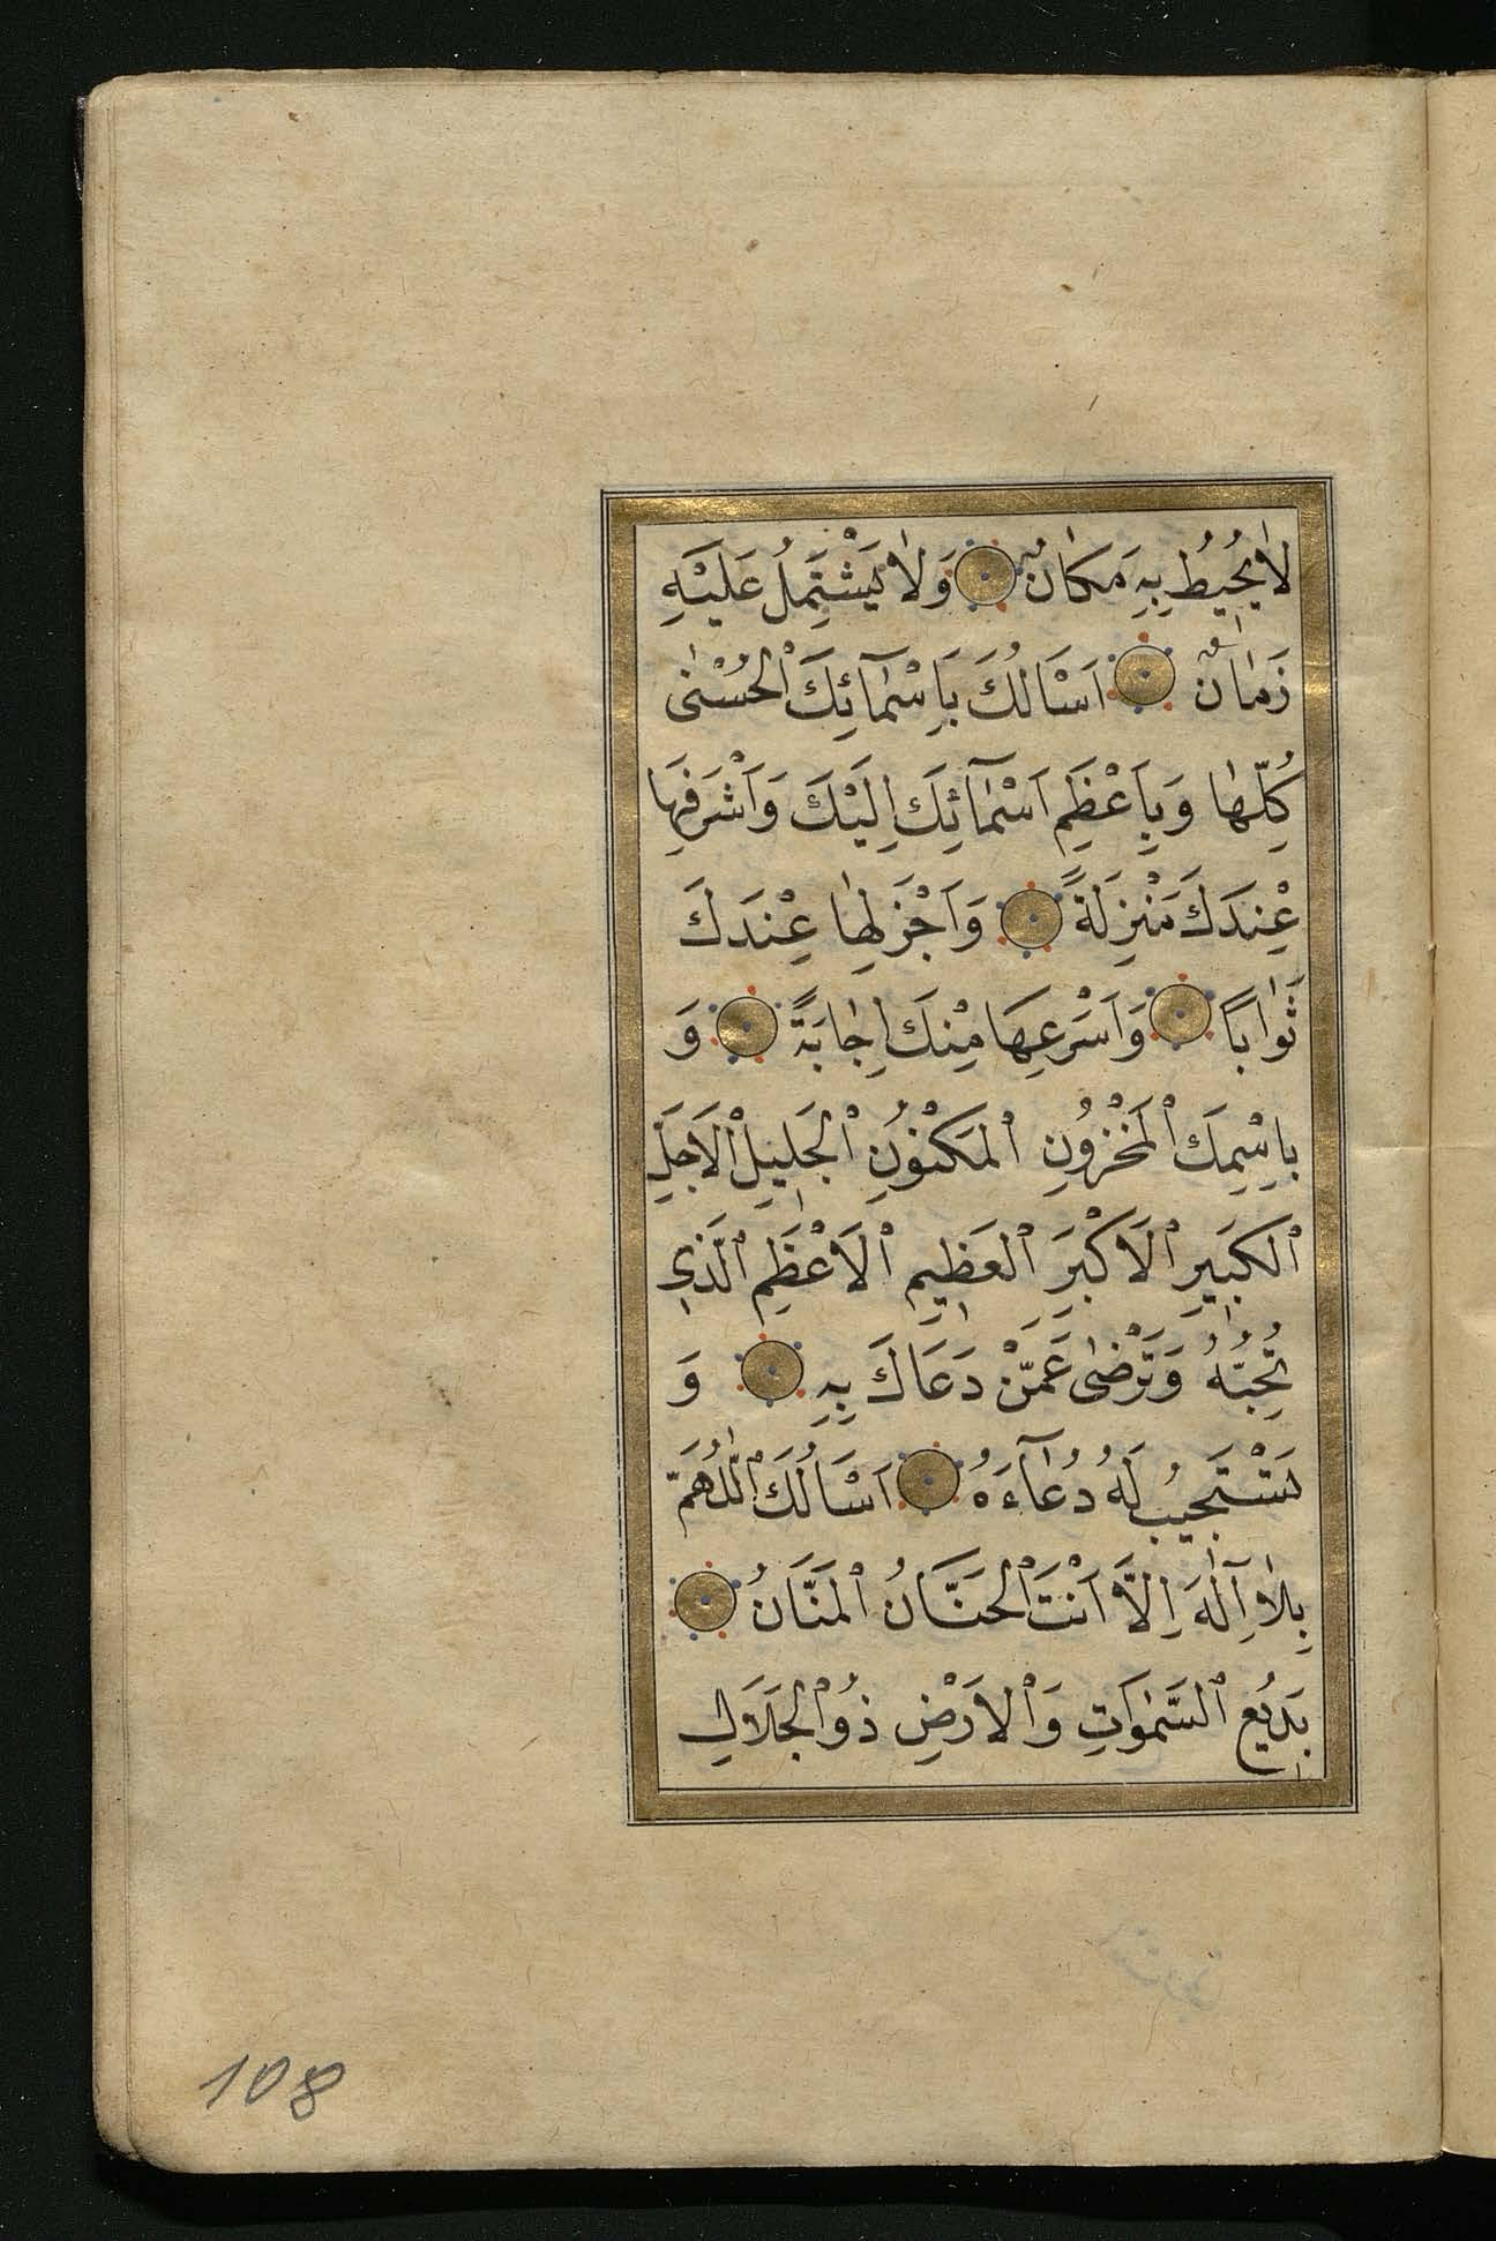 لَا يُحِيطُ بِهِ مَكَانٌ وَلَا يَشْتَمِلُ عَلَيْهِ
زَمَانٌ اَسْاَلُكَ بِاَسْمَآئِكَ ٱلْحُسْنٰى
كُلِّهَا وَبِاَعْظَمِ اَسْمَآئِكَ اِلَيْكَ وَاَشْرَفِهَا
عِنْدَكَ مَنْزِلَةً وَاَجْزَلِهَا عِنْدَكَ
ثَوَابًا وَاَسْرَعِهَا مِنْكَ اِجَابَةً وَ
بِاسْمِكَ ٱلْمَخْزُونِ ٱلْمَكْنُونِ ٱلْجَلِيلِ ٱلْاَجَلِّ
ٱلْكَبِيرِ ٱلْاَكْبَرِ ٱلْعَظِيمِ ٱلْاَعْظَمِ ٱلَّذِي
تُحِبُّهُ وَتَرْضٰى عَمَّنْ دَعَاكَ بِهِ وَ
تَسْتَجِيبُ لَهُ دُعَآءَهُ اَسْاَلُكَ ٱللّٰهُمَّ
بِلَا اِلٰهَ اِلَّا اَنْتَ ٱلْحَنَّانُ ٱلْمَنَّانُ
بَدِيعُ ٱلسَّمٰوَاتِ وَٱلْاَرْضِ ذُو ٱلْجَلَالِ
108